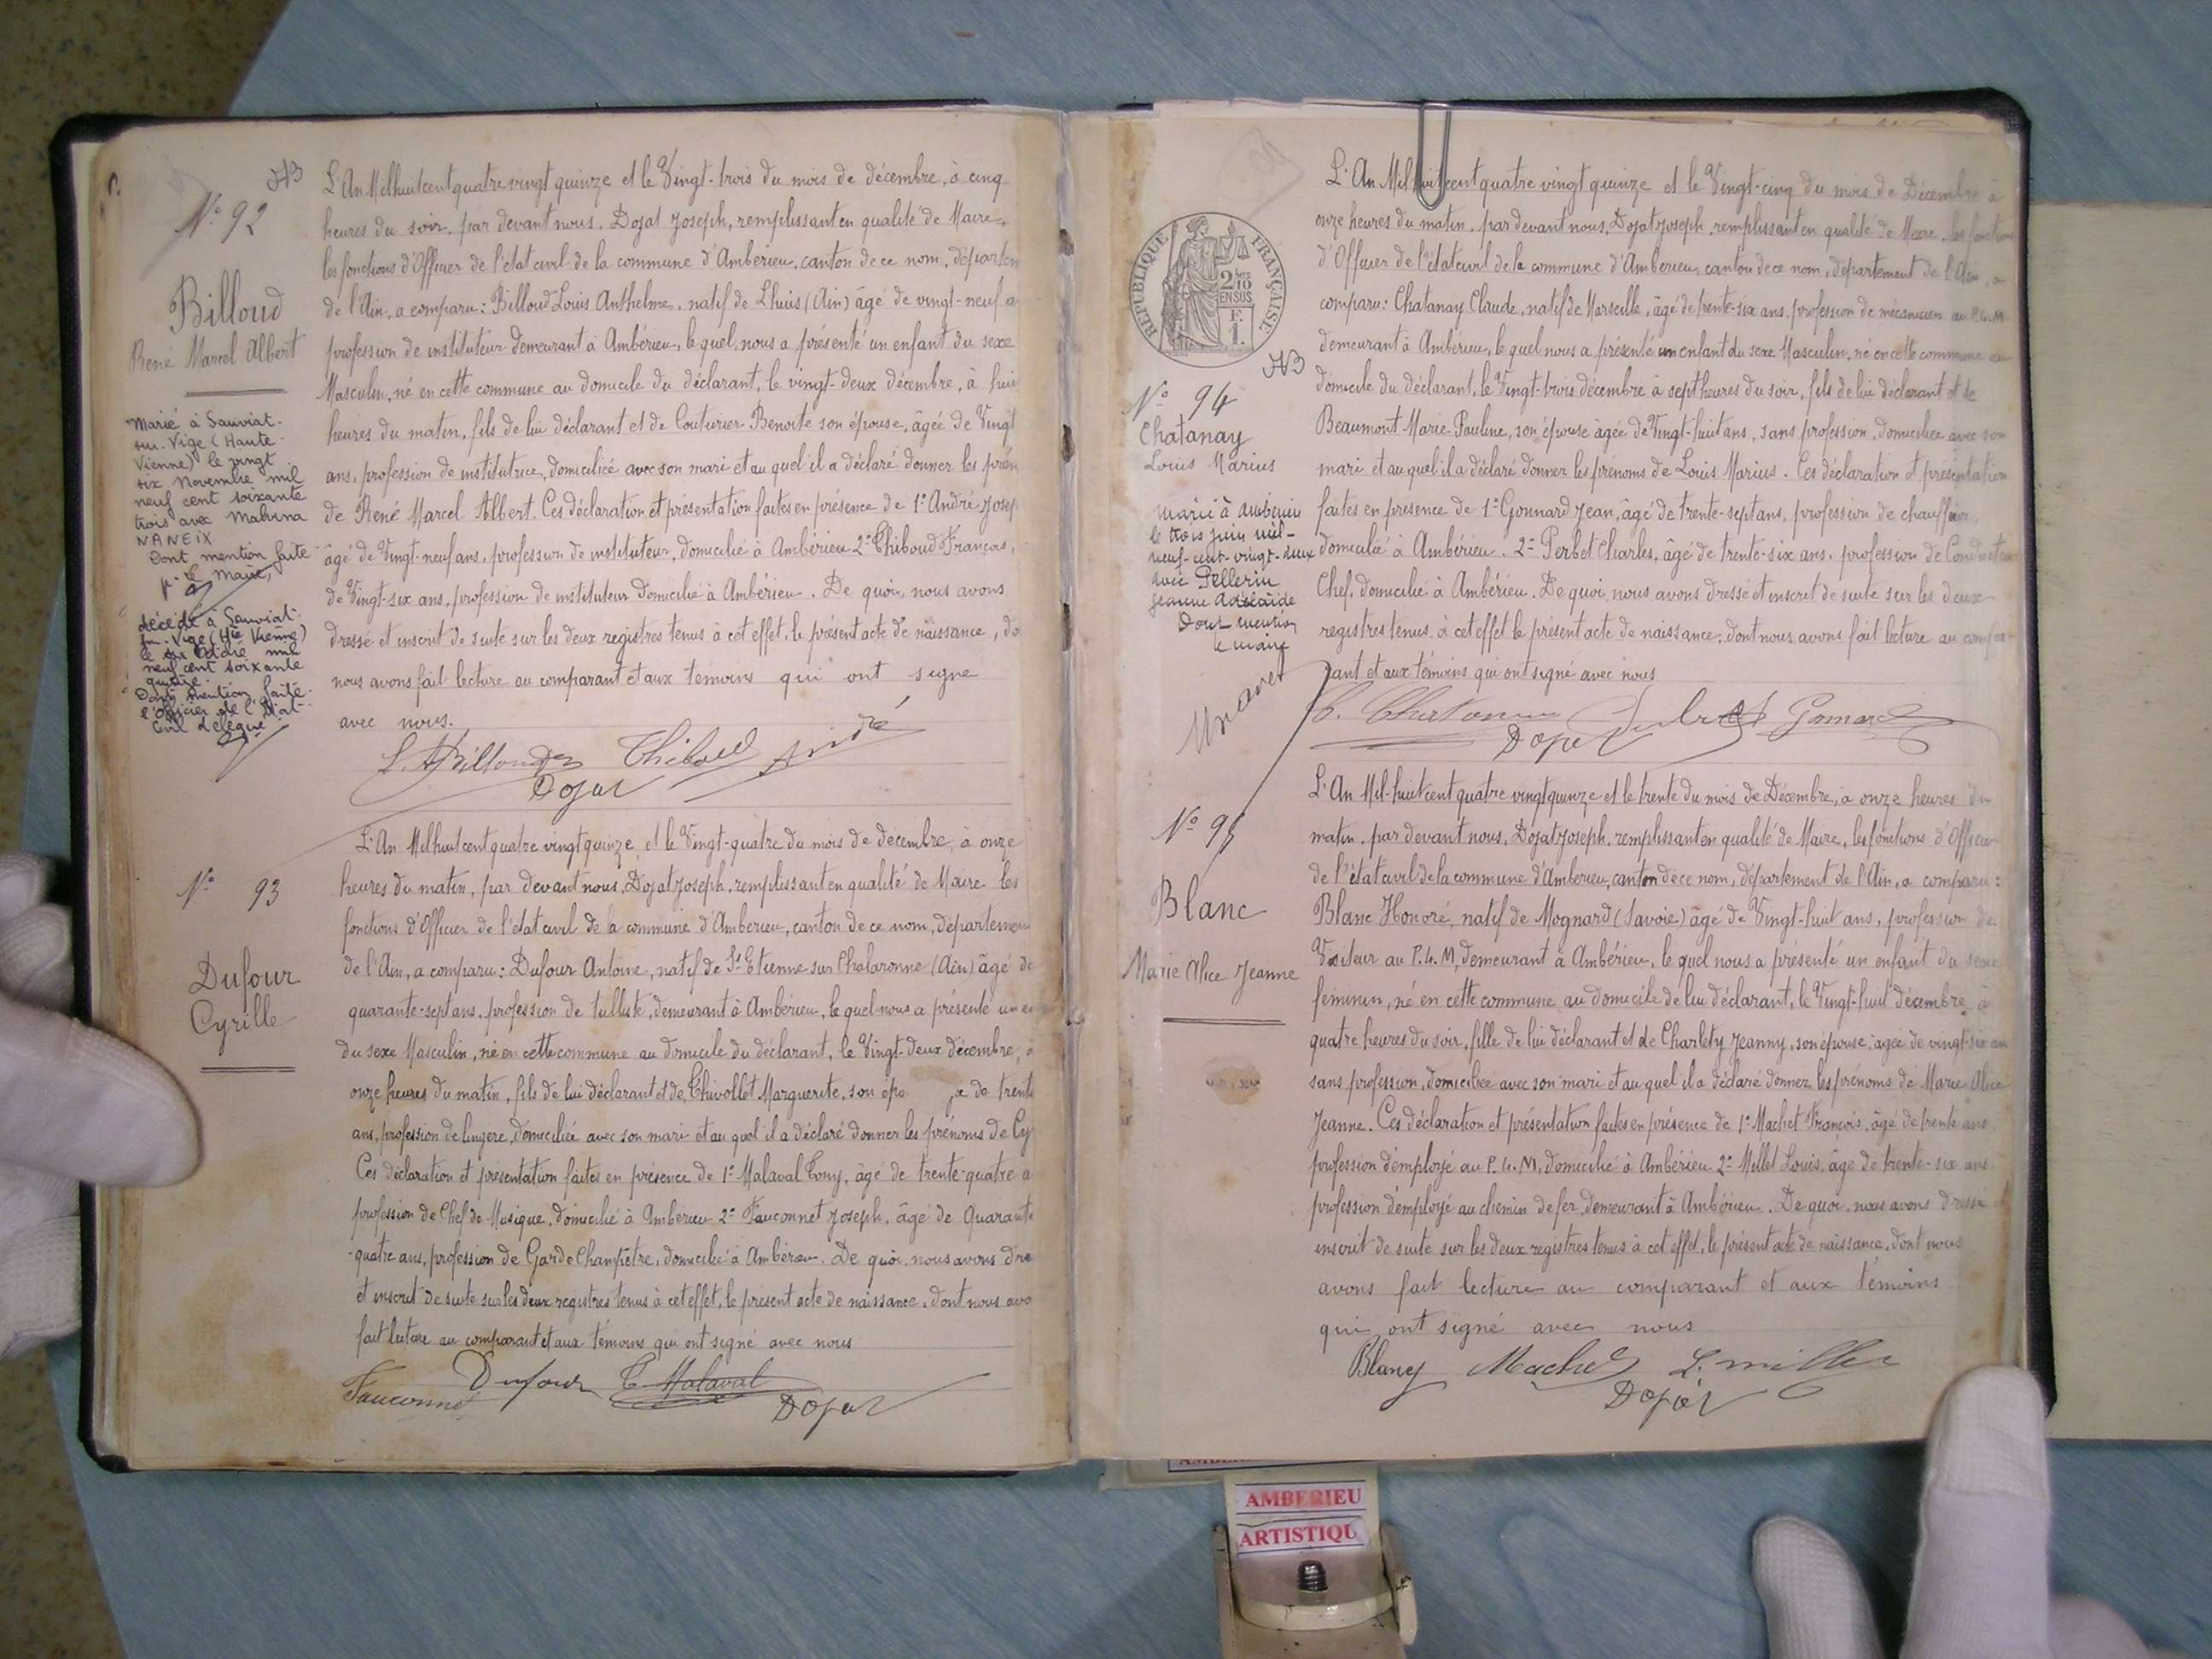 N° 92
Billoud
René Marcel Albert
Marié à Sauviat-
sur-Vige (Haute-
Vienne) le vingt
six Novembre mil
neuf cent soixante
trois avec Malvina
NANEIX
Dont mention faite
p. le Maire,
décédé à Sauviat-
sur-Vige (Hte Vienne)
le six Octobre mil
neuf cent soixante
quatre.
Dont mention faite.
l'Officier de l'Etat-
Civil délégué
L'An Milhuitcent quatre vingt quinze et le Vingt-trois du mois de décembre, à cinq
heures du soir, par devant nous, Dojat Joseph, remplissant en qualité de Maire,
les fonctions d'Officier de l'état civil de la commune d'Ambérieu, canton de ce nom, départem
de l'Ain, a comparu: Billoud Louis Anthelme, natif de Lhuis (Ain) âgé de vingt-neuf a
profession de instituteur demeurant à Ambérieu, le quel, nous a présenté un enfant du sexe
Masculin, né en cette commune au domicile du déclarant, le vingt-deux décembre, à hui
heures du matin, fils de lui déclarant et de Couturier Benoite son épouse, âgée de Vingt
ans, profession de institutrice, domiciliée avec son mari et au quel il a déclaré donner les prén
de René Marcel Albert. Ces déclaration et présentation faites en présence de 1° André Josep
âgé de Vingt-neuf ans, profession de instituteur, domicilié à Ambérieu 2° Thiboud François,
de Vingt-six ans, profession de instituteur domicilié à Ambérieu. De quoi, nous avons
dressé et inscrit de suite sur les deux registres tenus à cet effet, le présent acte de naissance, do
nous avons fait lecture au comparant et aux témoins qui ont signé
avec nous.
L. A. Billoud Thiboud André
Dojat
N° 93
Dufour
Cyrille
L'An Milhuitcent quatre vingt quinze, et le Vingt-quatre du mois de décembre, à onze
heures du matin, par devant nous, Dojat Joseph, remplissant en qualité de Maire les
fonctions d'Officier de l'état civil de la commune d'Ambérieu, canton de ce nom, départemen
de l'Ain, a comparu: Dufour Antoine, natif de St Etienne sur Chalaronne (Ain) âgé de
quarante-sept ans, profession de tulliste, demeurant à Ambérieu, le quel nous a présenté un en
du sexe Masculin, né en cette commune au domicile du déclarant, le Vingt-deux décembre, à
onze heures du matin, fils de lui déclarant et de Thivollet Marguerite, son épo e de trente
ans, profession de lingère, domiciliée avec son mari et au quel il a déclaré donner les prénoms de Cy
Ces déclaration et présentation faites en présence de 1° Malaval Tony, âgé de trente-quatre a
profession de Chef de Musique, domicilié à Ambérieu 2° Fauconnet Joseph, âgé de Quarante
-quatre ans, profession de Garde Champêtre, domicilié à Ambérieu. De quoi, nous avons dre
et inscrit de suite sur les deux registres tenus à cet effet, le présent acte de naissance, dont nous avo
fait lecture au comparant et aux témoins qui ont signé avec nous
Fauconnet Dufour T. Malaval
Dojat
REPUBLIQUE FRANÇAISE
2/10
EN SUS
F.
1.
N° 94
Chatanay
Louis Marius
Marié à Ambérieu
le trois juin mil-
neuf-cent-vingt-deux
avec Pellerin
Jeanne Adélaïde
Dont mention
le maire
L'An Milhuitcent quatre vingt quinze et le Vingt-cinq du mois de Décembre a
onze heures du matin, par devant nous, Dojat Joseph, remplissant en qualité de Maire, les fonction
d'Officier de l'état civil de la commune d'Ambérieu, canton de ce nom, département de l'Ain, a
comparu: Chatanay Claude, natif de Marseille, âgé de trente-six ans, profession de mécanicien au P.L.M
demeurant à Ambérieu, le quel nous a présenté un enfant du sexe Masculin, né en cette commune au
domicile du déclarant, le Vingt-trois décembre à sept heures du soir, fils de lui déclarant et de
Beaumont Marie-Pauline, son épouse âgée de Vingt-huit ans, sans profession, domiciliée avec son
mari et au quel il a déclaré donner les prénoms de Louis Marius. Ces déclaration et présentation
faites en présence de 1° Gonnard Jean, âgé de trente-sept ans, profession de chauffeur,
domicilié à Ambérieu. 2° Perbet Charles, âgé de trente-six ans, profession de Conducteur
Chef, domicilié à Ambérieu. De quoi, nous avons dressé et inscrit de suite sur les deux
registres tenus à cet effet le présent acte de naissance, dont nous avons fait lecture au compa-
rant et aux témoins qui ont signé avec nous
C. Chatanay Perbet Gonnard
Dojat
N° 95
Blanc
Marie Alice Jeanne
L'An Mil-huit cent quatre vingt quinze et le trente du mois de Décembre, à onze heures du
matin, par devant nous, Dojat Joseph, remplissant en qualité de Maire, les fonctions d'Officier
de l'état civil de la commune d'Ambérieu, canton de ce nom, département de l'Ain, a comparu:
Blanc Honoré, natif de Mognard (Savoie) âgé de Vingt-huit ans, profession de
Visiteur au P.L.M, demeurant à Ambérieu, le quel nous a présenté un enfant du sexe
féminin, né en cette commune au domicile de lui déclarant, le Vingt-huit décembre, à
quatre heures du soir, fille de lui déclarant et de Charlety Jeanny, son épouse, âgée de vingt-six ans
sans profession, domiciliée avec son mari et au quel il a déclaré donner les prénoms de Marie Alice
Jeanne. Ces déclaration et présentation faites en présence de 1° Machet François, âgé de trente ans
profession d'employé au P.L.M, domicilié à Ambérieu 2° Millet Louis, âgé de trente-six ans
profession d'employé au chemin de fer, demeurant à Ambérieu. De quoi, nous avons dressé et
inscrit de suite sur les deux registres tenus à cet effet, le présent acte de naissance, dont nous
avons fait lecture au comparant et aux témoins
qui ont signé avec nous
Blanc Machet L. Millet
Dojat
AMBERIEU
ARTISTIQU